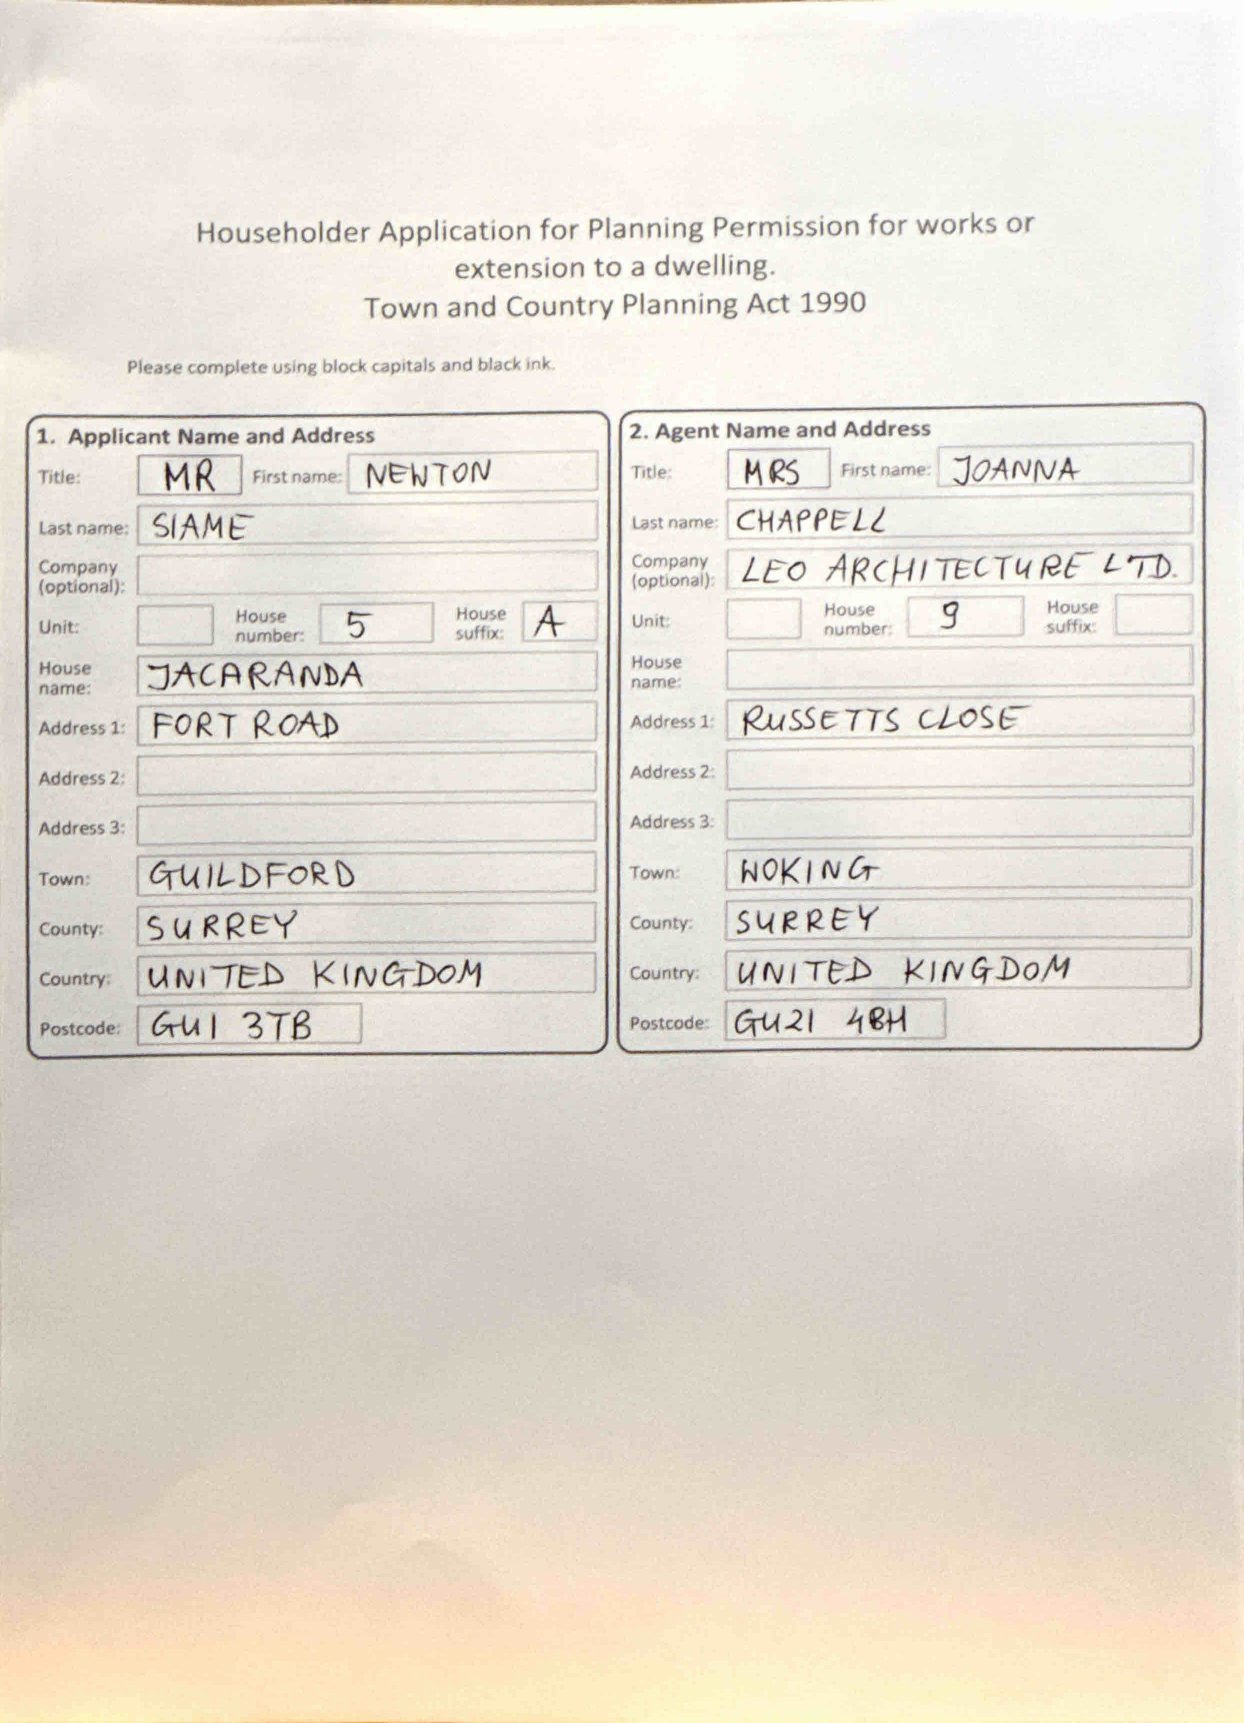 Householder Application for Planning Permission for works or
extension to a dwelling.
Town and Country Planning Act 1990
Please complete using block capitals and black ink.
1. Applicant Name and Address
Title: MR First name: NEWTON
Last name: SIAME
Company
(optional):
Unit: House number: 5 House suffix: A
House name: JACARANDA
Address 1: FORT ROAD
Address 2:
Address 3:
Town: GUILDFORD
County: SURREY
Country: UNITED KINGDOM
Postcode: GU1 3TB
2. Agent Name and Address
Title: MRS First name: JOANNA
Last name: CHAPPELL
Company
(optional): LEO ARCHITECTURE LTD.
Unit: House number: 9 House suffix:
House name:
Address 1: RUSSETTS CLOSE
Address 2:
Address 3:
Town: WOKING
County: SURREY
Country: UNITED KINGDOM
Postcode: GU21 4BH